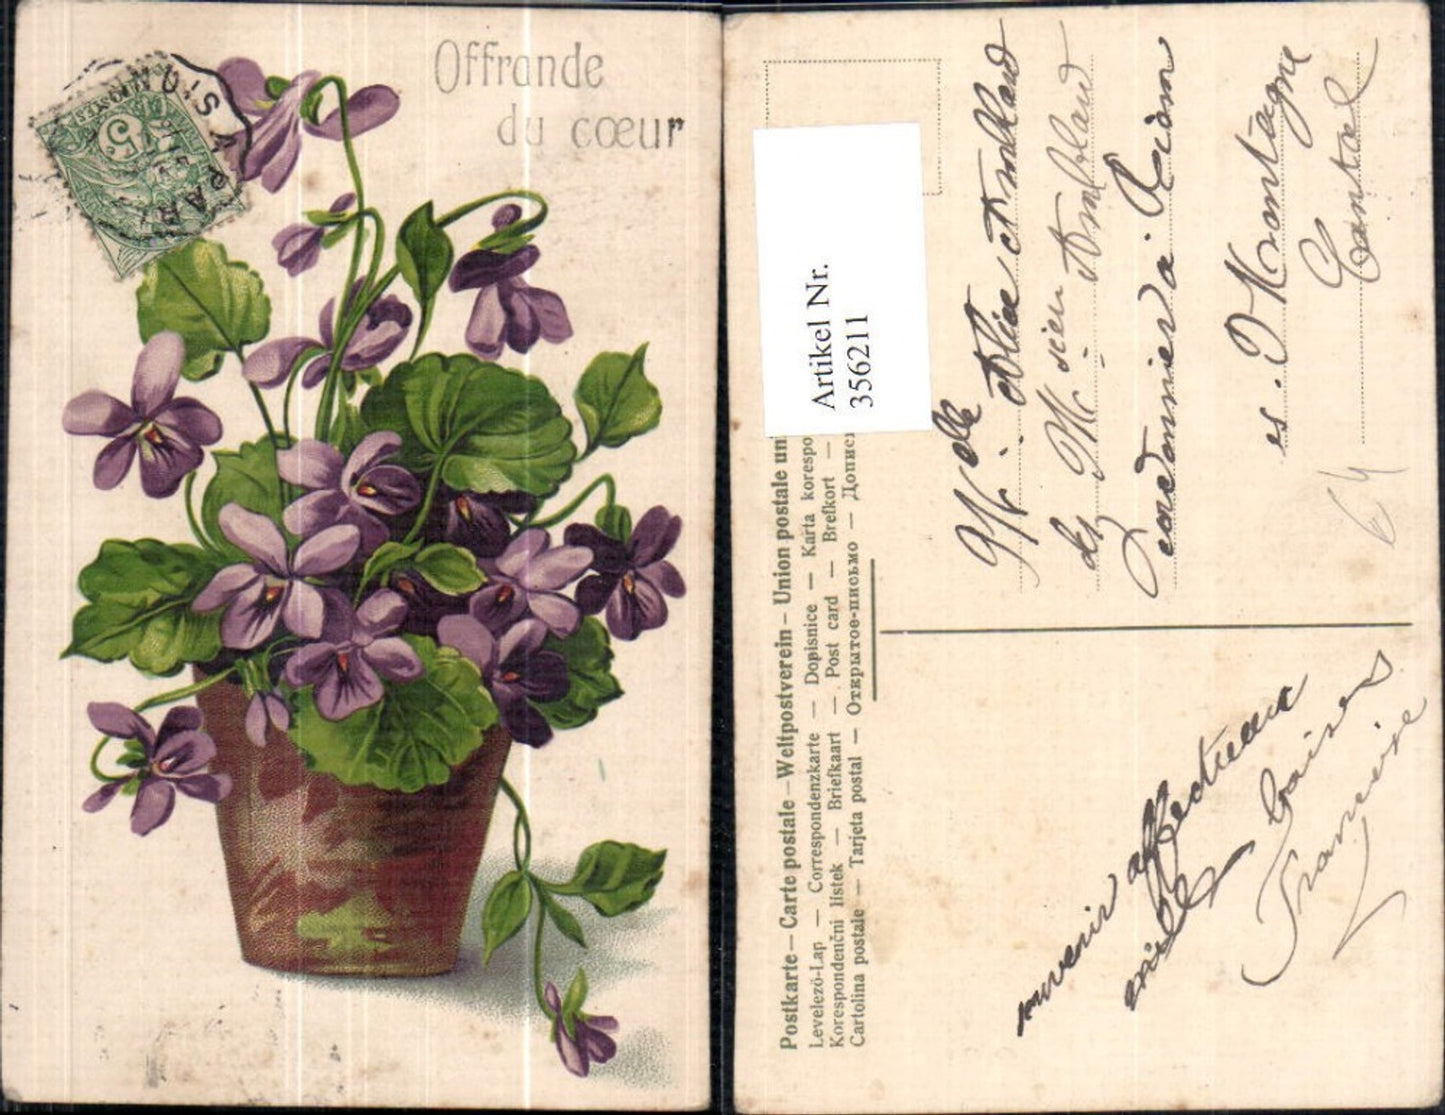 Offrande
du cœur
5
PARIS
Artikel Nr.
356211
Postkarte — Carte postale — Weltpostverein — Union postale uni
Levelező-Lap — Correspondenzkarte — Dopisnice — Karta korespo
Korespondenční listek — Briefkaart — Post card — Brefkort —
Cartolina postale — Tarjeta postal — Открытое-письмо — Дописн
Mlle Alice
chez Mr
cordonnier à Riom
es Montagne
Cantal
64
souvenir affectueux
mille baisers
Francine